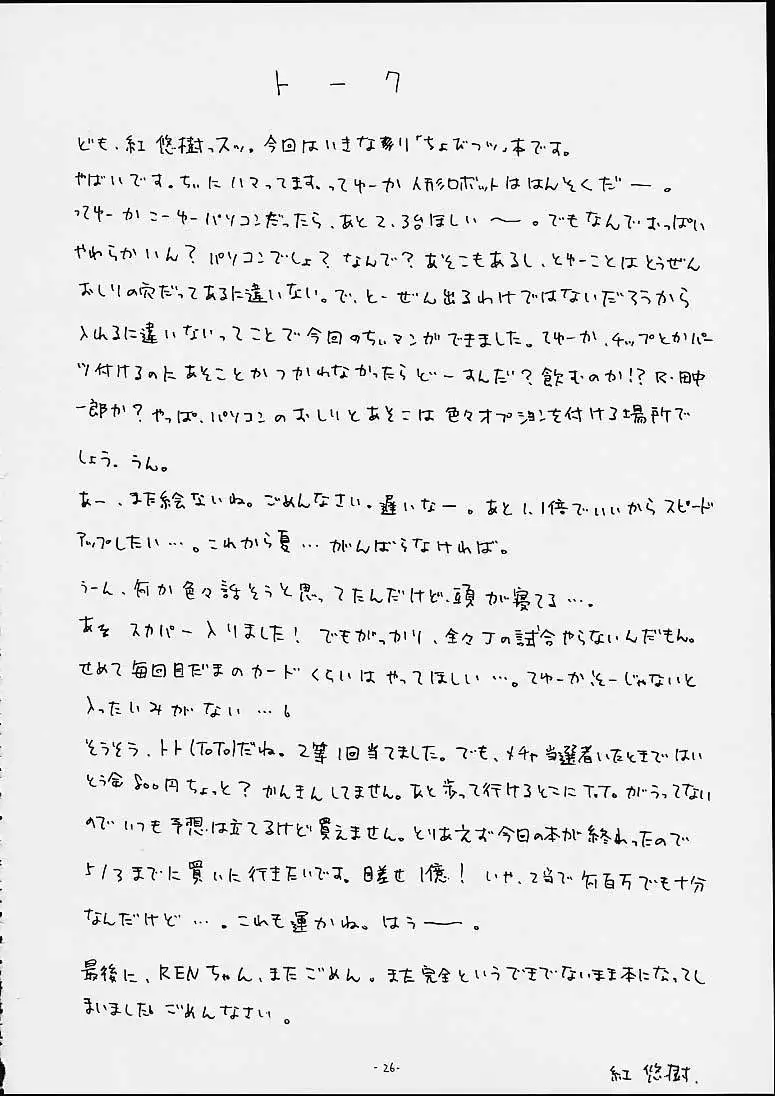 トーク
ども、紅 悠樹っスッ。今回はいきなり「ちょびっツ」本です。
やばいです。ちぃにハマってます、ってゆーか人形ロボットははんそくだー。
ってゆーかこーゆーパソコンだったら、あと2、3台ほしい〜。でもなんでおっぱい
やわらかいん?パソコンでしょ?なんで?あそこもあるし、とゆーことはとうぜん
おしりの穴だってあるに違いない。で、とーぜん出るわけではないだろうから
入れるに違いないってことで今回のちぃマンガができました。てゆーか、チップとかパー
ツ付けるのにあそことかつかわなかったらどーすんだ?飲むのか!?R・田中
一郎か?やっぱ、パソコンのおしりとあそこは色々オプションを付ける場所で
しょう、うん。
あー、まだ絵ないね。ごめんなさい。遅いなー。あと1.1倍でいいからスピード
アップしたい…。これから夏…がんばらなければ。
うーん、何か色々話そうと思ってたんだけど、頭が寝てる…。
あそ スカパー入りました!でもがっかり、全々Jの試合やらないんだもん。
せめて毎回目だまのカードくらいはやってほしい…。てゆーか、そーじゃないと
入ったいみがない…。
そうそう、トト(ToTo)だね。2等1回当てました。でも、メチャ当選者いたときではい
とう金800円ちょっと?かんきんしてません。あと歩って行けるとこにT.T.がうってない
のでいつも予想は立てるけど買えません。とりあえず今回の本が終わったので
5/3までに買いに行きたいです。目差せ1億!いや、2当で何百万でも十分
なんだけど…。これも運かね。はぅ——。
最後に、RENちゃん、またごめん。また完全というできでないまま本になってし
まいました。ごめんなさい。
-26-
紅 悠樹.